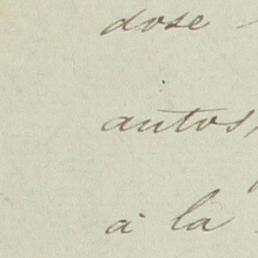 dose
autos,
à la